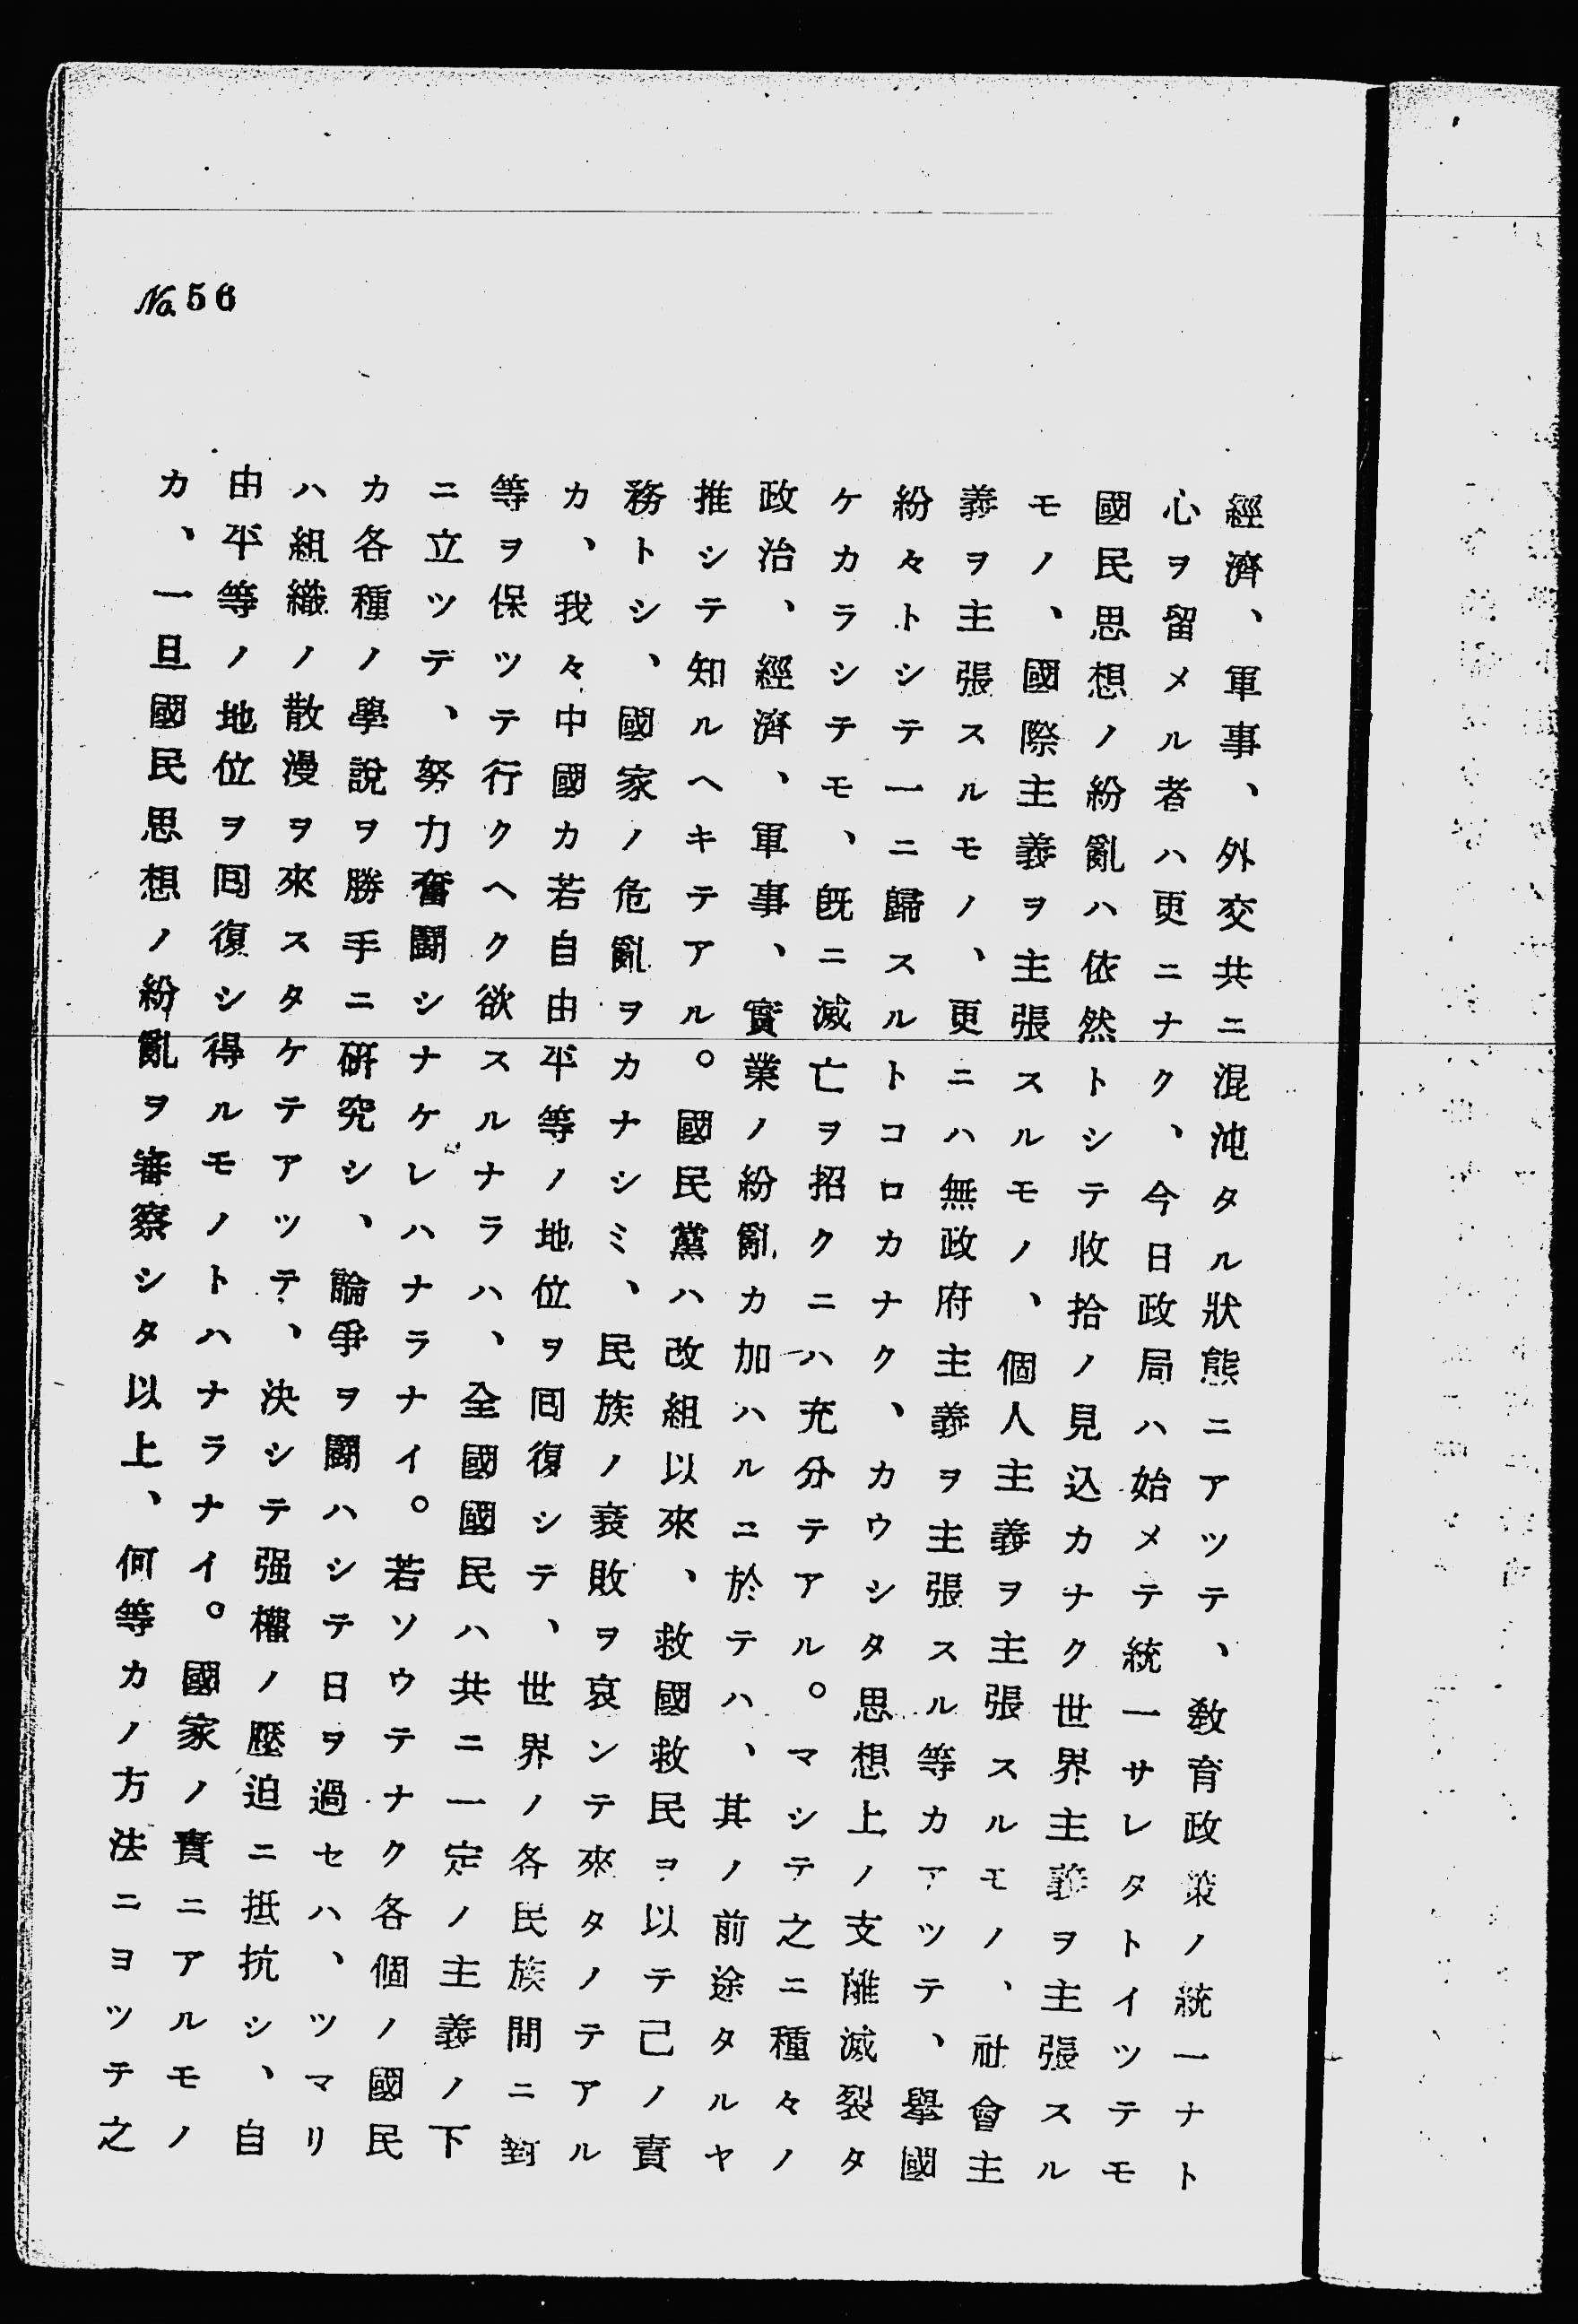 No.56
經濟、軍事、外交共ニ混沌タル狀態ニアツテ、敎育政策ノ統一ナト
心ヲ留メル者ハ更ニナク、今日政局ハ始メテ統一サレタトイツテモ
國民思想ノ紛亂ハ依然トシテ收拾ノ見込カナク世界主義ヲ主張スル
モノ、國際主義ヲ主張スルモノ、個人主義ヲ主張スルモノ、社會主
義ヲ主張スルモノ、更ニハ無政府主義ヲ主張スル等カアツテ、擧國
紛々トシテ一ニ歸スルトコロカナク、カウシタ思想上ノ支離滅裂タ
ケカラシテモ、旣ニ滅亡ヲ招クニハ充分テアル。マシテ之ニ種々ノ
政治、經濟、軍事、實業ノ紛亂カ加ハルニ於テハ、其ノ前途タルヤ
推シテ知ルヘキテアル。國民黨ハ改組以來、救國救民ヲ以テ己ノ責
務トシ、國家ノ危亂ヲカナシミ、民族ノ衰敗ヲ哀ンテ來タノテアル
カ、我々中國カ若自由平等ノ地位ヲ囘復シテ、世界ノ各民族間ニ對
等ヲ保ツテ行クヘク欲スルナラハ、全國國民ハ共ニ一定ノ主義ノ下
ニ立ツテ、努力奮鬪シナケレハナラナイ。若ソウテナク各個ノ國民
カ各種ノ學說ヲ勝手ニ硏究シ、論爭ヲ鬪ハシテ日ヲ過セハ、ツマリ
ハ組織ノ散漫ヲ來スタケテアツテ、決シテ强權ノ壓迫ニ抵抗シ、自
由平等ノ地位ヲ囘復シ得ルモノトハナラナイ。國家ノ實ニアルモノ
カ、一旦國民思想ノ紛亂ヲ審察シタ以上、何等カノ方法ニヨツテ之